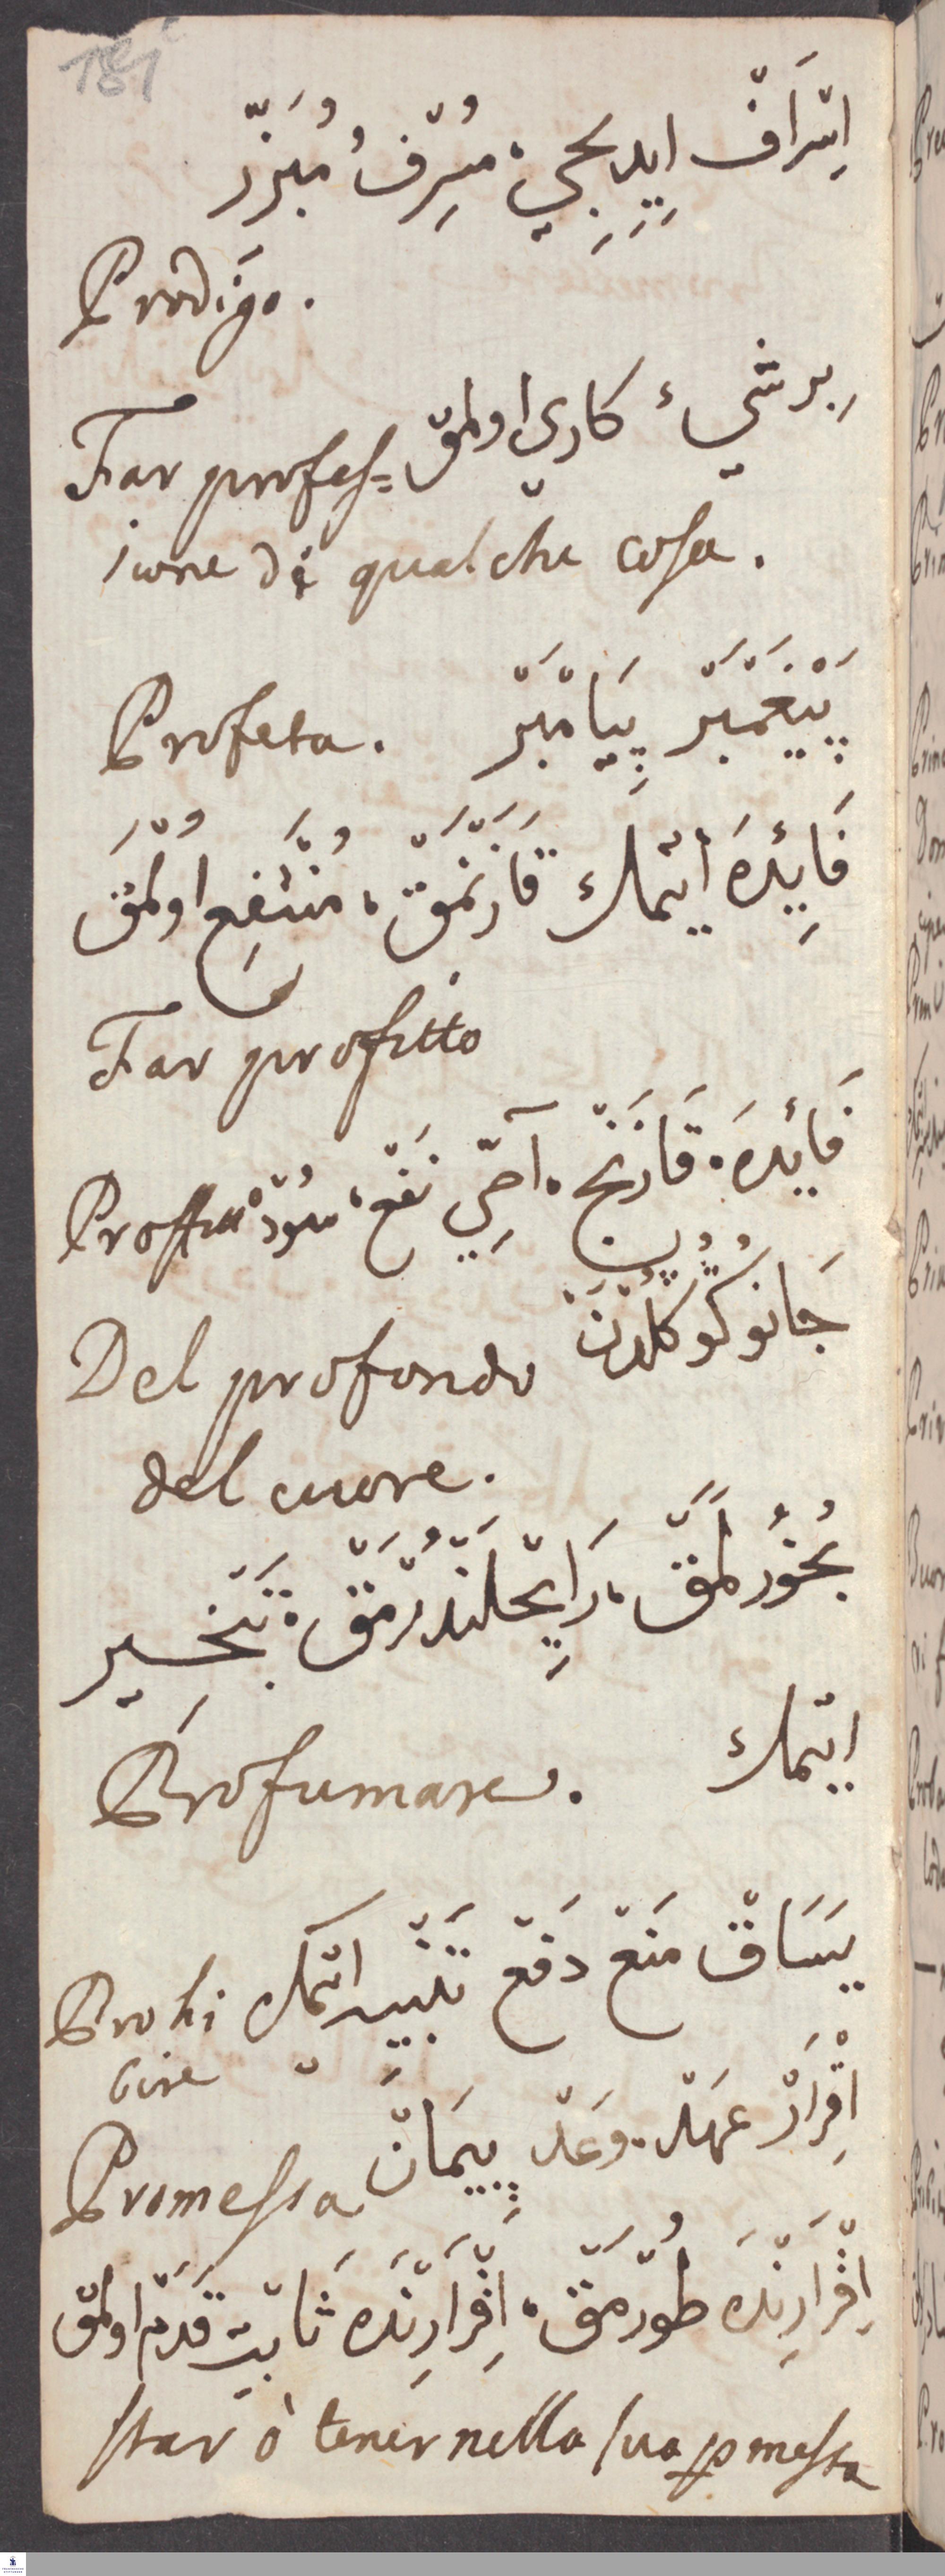 181
اِسْرَافْ اِيدِيجِي، مُسْرِفْ مُبَزّر
Prodigo.
بِر شيء كاري اولمق Far profes=
sione di qualche cosa.
پَيْغَمْبَرْ پِيَامْبَرْ Profeta.
فَائِدَه ايتمك قَازَنْمَقْ، مُنْتَفِع اولْمَقْ
Far profitto
فَائِدَه، قَازَنْج، آصّي نَفَعْ، سُودْ Profitto
جَان و گوڭلدن Del profondo
del cuore.
بُخُورلَمَقْ، رَايِحَلَنْدُرْمَقْ، تَبْخِير
ايتمك Profumare.
يَسَاقْ مَنَعْ دَفَعْ تَنْبِيه اتمك Prohi
bire
اِقْرَارْ عَهْدْ. وَعَدْ پِيمَانْ Promessa
اِقْرَارِنْدَه طُورْمَقْ، اِقْرَارِنْدَه ثَابِتْ قَدَمْ اولمق
star ò tener nella sua promessa